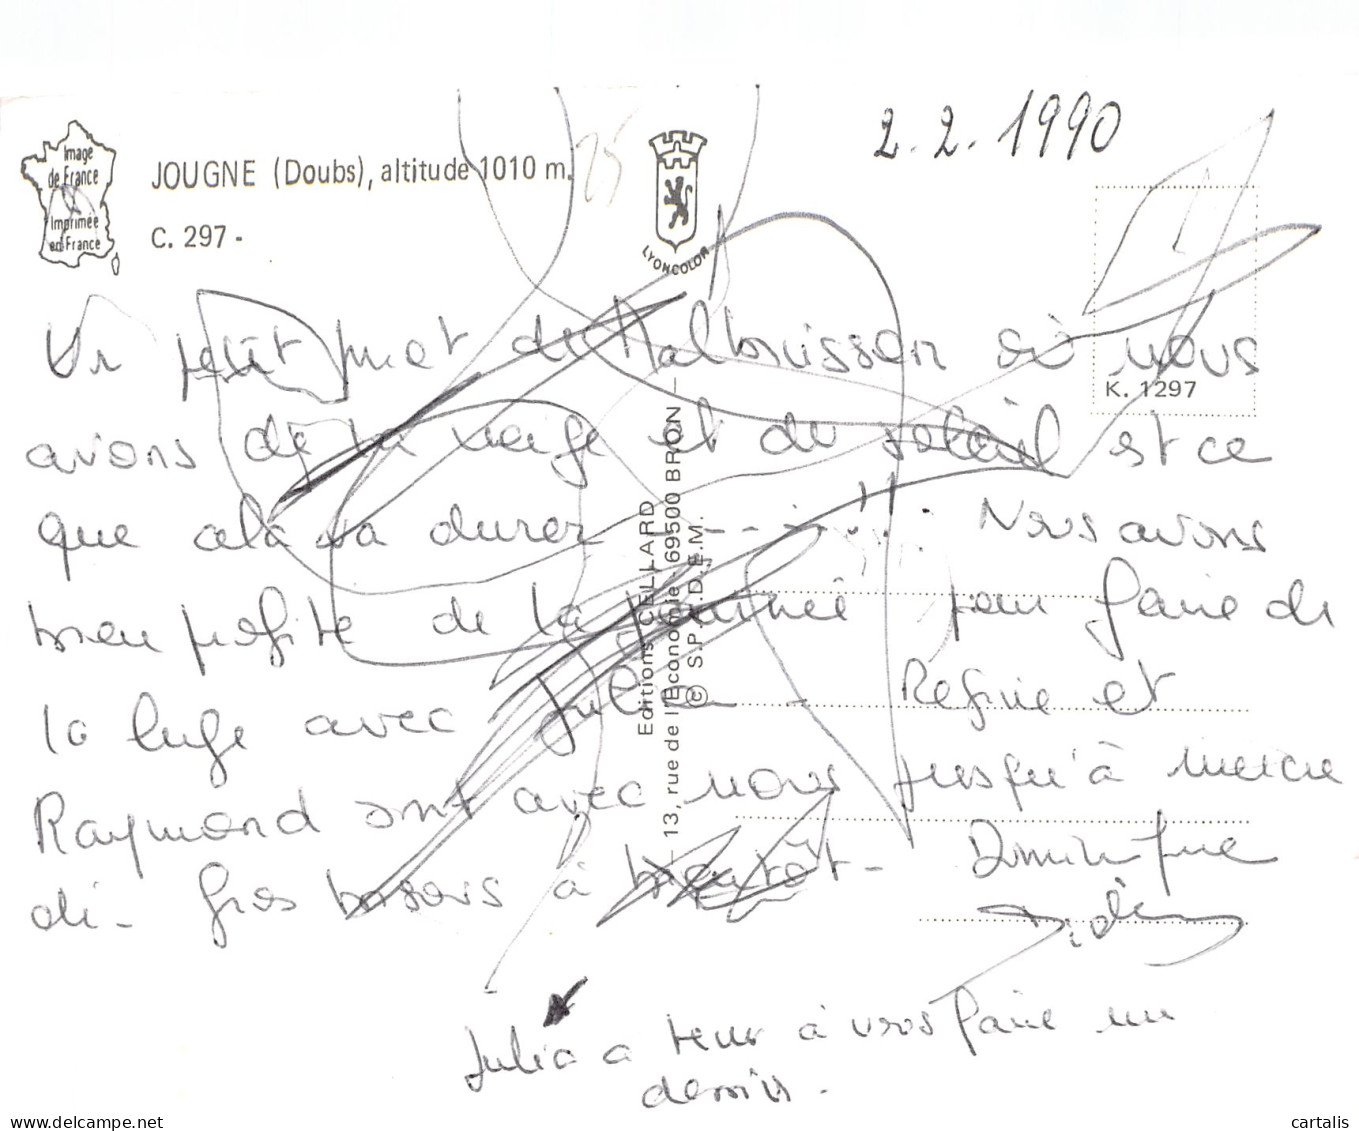 2.2.1990
Image
de France
Imprimée
en France
JOUGNE (Doubs), altitude 1010 m.
C. 297 -
LYONCOLOR
K. 1297
Editions CELLARD
13, rue de l'Economie - 69500 BRON
© S.P.A.D.E.M.
Un petit mot de Malbuisson où nous
avons de la neige et du soleil est ce
que cela va durer - - - - !! Nous avons
bien profité de la journée pour faire de
la luge avec Julia - Regine et
Raymond sont avec nous jusqu'à mercre
di - Gros baisers à bientôt - Dominique
Didier
Julia a tenu à vous faire un
dessin -
delcampe.net
cartalis